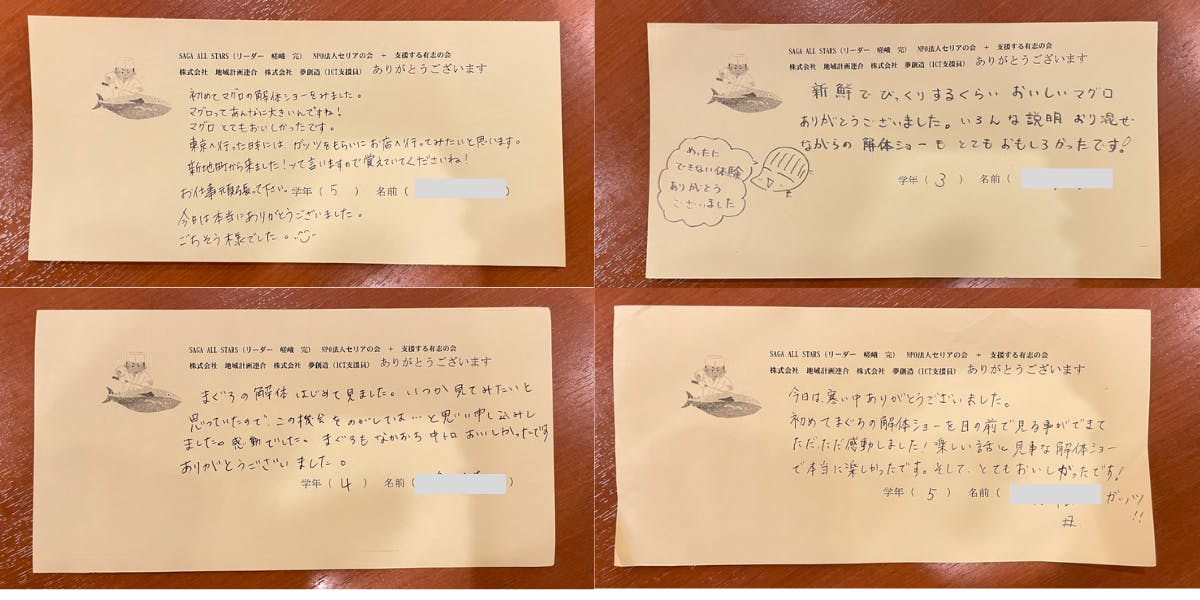 SAGA ALL STARS (リーダー 嵯峨 完) NPO法人セリアの会 + 支援する有志の会
株式会社 地域計画連合 株式会社 夢創造(ICT支援員) ありがとうございます
初めてマグロの解体ショーをみました。
マグロってあんなに大きいんですね!
マグロ とてもおいしかったです。
東京へ行った時には ガッツをもらいにお店へ行ってみたいと思います。
新地町から来ました!って言いますので覚えていてくださいね!
お仕事頑張って下さい。 学年( 5 ) 名前( )
今日は本当にありがとうございました。
ごちそう様でした。
SAGA ALL STARS (リーダー 嵯峨 完) NPO法人セリアの会 + 支援する有志の会
株式会社 地域計画連合 株式会社 夢創造(ICT支援員) ありがとうございます
新鮮で びっくりするくらい おいしいマグロ
ありがとうございました。いろんな説明 おり混ぜ
ながらの 解体ショーも とてもおもしろかったです!
めったに
できない体験
ありがとう
ございました
学年( 3 ) 名前( )
SAGA ALL STARS (リーダー 嵯峨 完) NPO法人セリアの会 + 支援する有志の会
株式会社 地域計画連合 株式会社 夢創造(ICT支援員) ありがとうございます
まぐろの解体 はじめて見ました。いつか見てみたいと
思っていたので、この機会をのがしては…と思い申し込みし
ました。感動でした。まぐろも なかおち 中トロ おいしかったです
ありがとうございました。
学年( 4 ) 名前( )
SAGA ALL STARS (リーダー 嵯峨 完) NPO法人セリアの会 + 支援する有志の会
株式会社 地域計画連合 株式会社 夢創造(ICT支援員) ありがとうございます
今日は、寒い中ありがとうございました。
初めてまぐろの解体ショーを目の前で見る事ができて
ただ、ただ感動しました!楽しい話に見事な解体ショー
で本当に楽しかったです。そして、とてもおいしかったです!
学年( 5 ) 名前( ) ガッツ!!
母